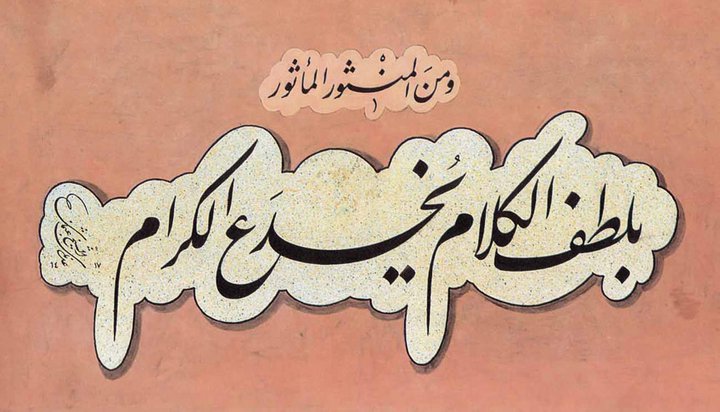 ومنَ المنثور المأثور
بلطف الكلام يُخدَع الكرام
١٤١٧